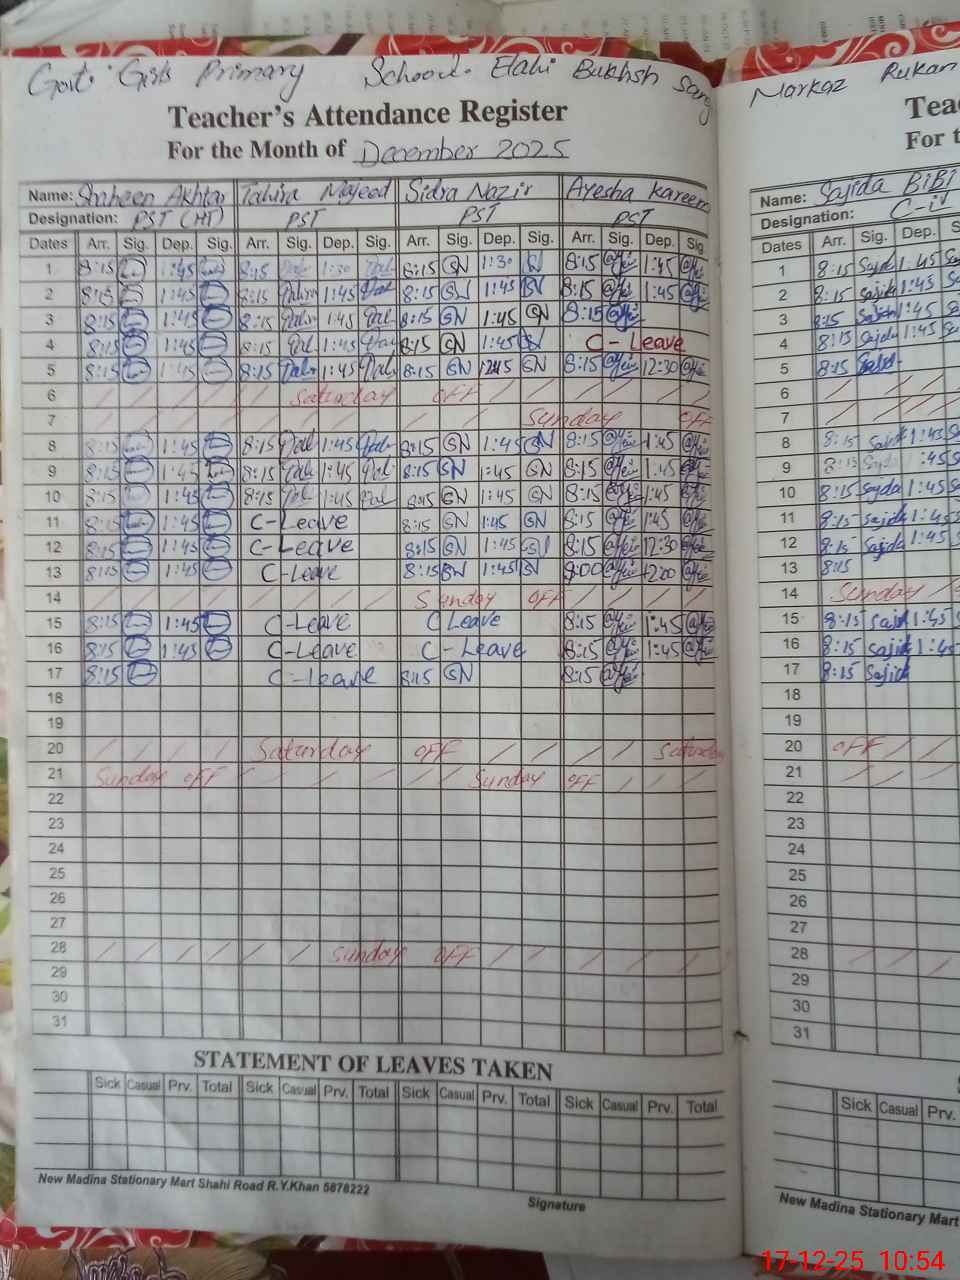 Govt. Girls Primary School. Elahi Bukhsh
Teacher's Attendance Register
For the Month of December 2025
Name: Shaheen Akhtar Tahira Majeed Sidra Nazir Ayesha Kareem
Designation: PST (HT) PST PST PST
Dates Arr. Sig. Dep. Sig. Arr. Sig. Dep. Sig. Arr. Sig. Dep. Sig. Arr. Sig. Dep. Sig
1 8:15 1:45 8:15 1:30 8:15 SN 1:30 8:15 1:45
2 8:15 1:45 8:15 1:45 8:15 SN 1:45 SN 8:15 1:45
3 8:15 1:45 8:15 1:45 8:15 SN 1:45 SN 8:15
4 8:15 1:45 8:15 1:45 8:15 SN 1:45 C-Leave
5 8:15 1:45 8:15 1:45 8:15 SN SN 8:15 12:30
6 Saturday OFF
7 Sunday OFF
8 8:15 1:45 8:15 1:45 8:15 SN 1:45 SN 8:15 1:45
9 8:15 1:45 8:15 1:45 8:15 SN 1:45 SN 8:15 1:45
10 8:15 1:45 8:15 1:45 8:15 SN 1:45 SN 8:15 1:45
11 8:15 1:45 C-Leave 8:15 SN 1:45 SN 8:15 1:45
12 8:15 1:45 C-Leave 8:15 SN 1:45 SN 8:15 12:30
13 8:15 1:45 C-Leave 8:15 SN 1:45 SN 8:00 12:00
14 Sunday OFF
15 8:15 1:45 C-Leave C Leave 8:15 1:45
16 8:15 1:45 C-Leave C-Leave 8:15 1:45
17 8:15 C-leave 8:15 SN 8:15
18
19
20 Saturday OFF Saturday
21 Sunday OFF Sunday OFF
22
23
24
25
26
27
28 Sunday OFF
29
30
31
STATEMENT OF LEAVES TAKEN
Sick Casual Prv. Total Sick Casual Prv. Total Sick Casual Prv. Total Sick Casual Prv. Total
New Madina Stationary Mart Shahi Road R.Y.Khan 5878222
Signature
Markaz Rukan
Tea
For t
Name: Sajida BiBi
Designation: C-iv
Dates Arr. Sig. Dep. S
1 8:15 Sajida 1:45
2 8:15 Sajida 1:45
3 8:15 Sajida 1:45
4 8:15 Sajida 1:45
5 8:15 Sajida
6
7
8 8:15 Sajida 1:45
9 8:15 Sajida :45
10 8:15 Sajida 1:45
11 8:15 Sajida 1:45
12 8:15 Sajida 1:45
13 8:15
14 Sunday
15 8:15 Sajida 1:45
16 8:15 Sajida 1:45
17 8:15 Sajida
18
19
20 OFF
21
22
23
24
25
26
27
28
29
30
31
Sick Casual Prv.
New Madina Stationary Mart
17-12-25 10:54